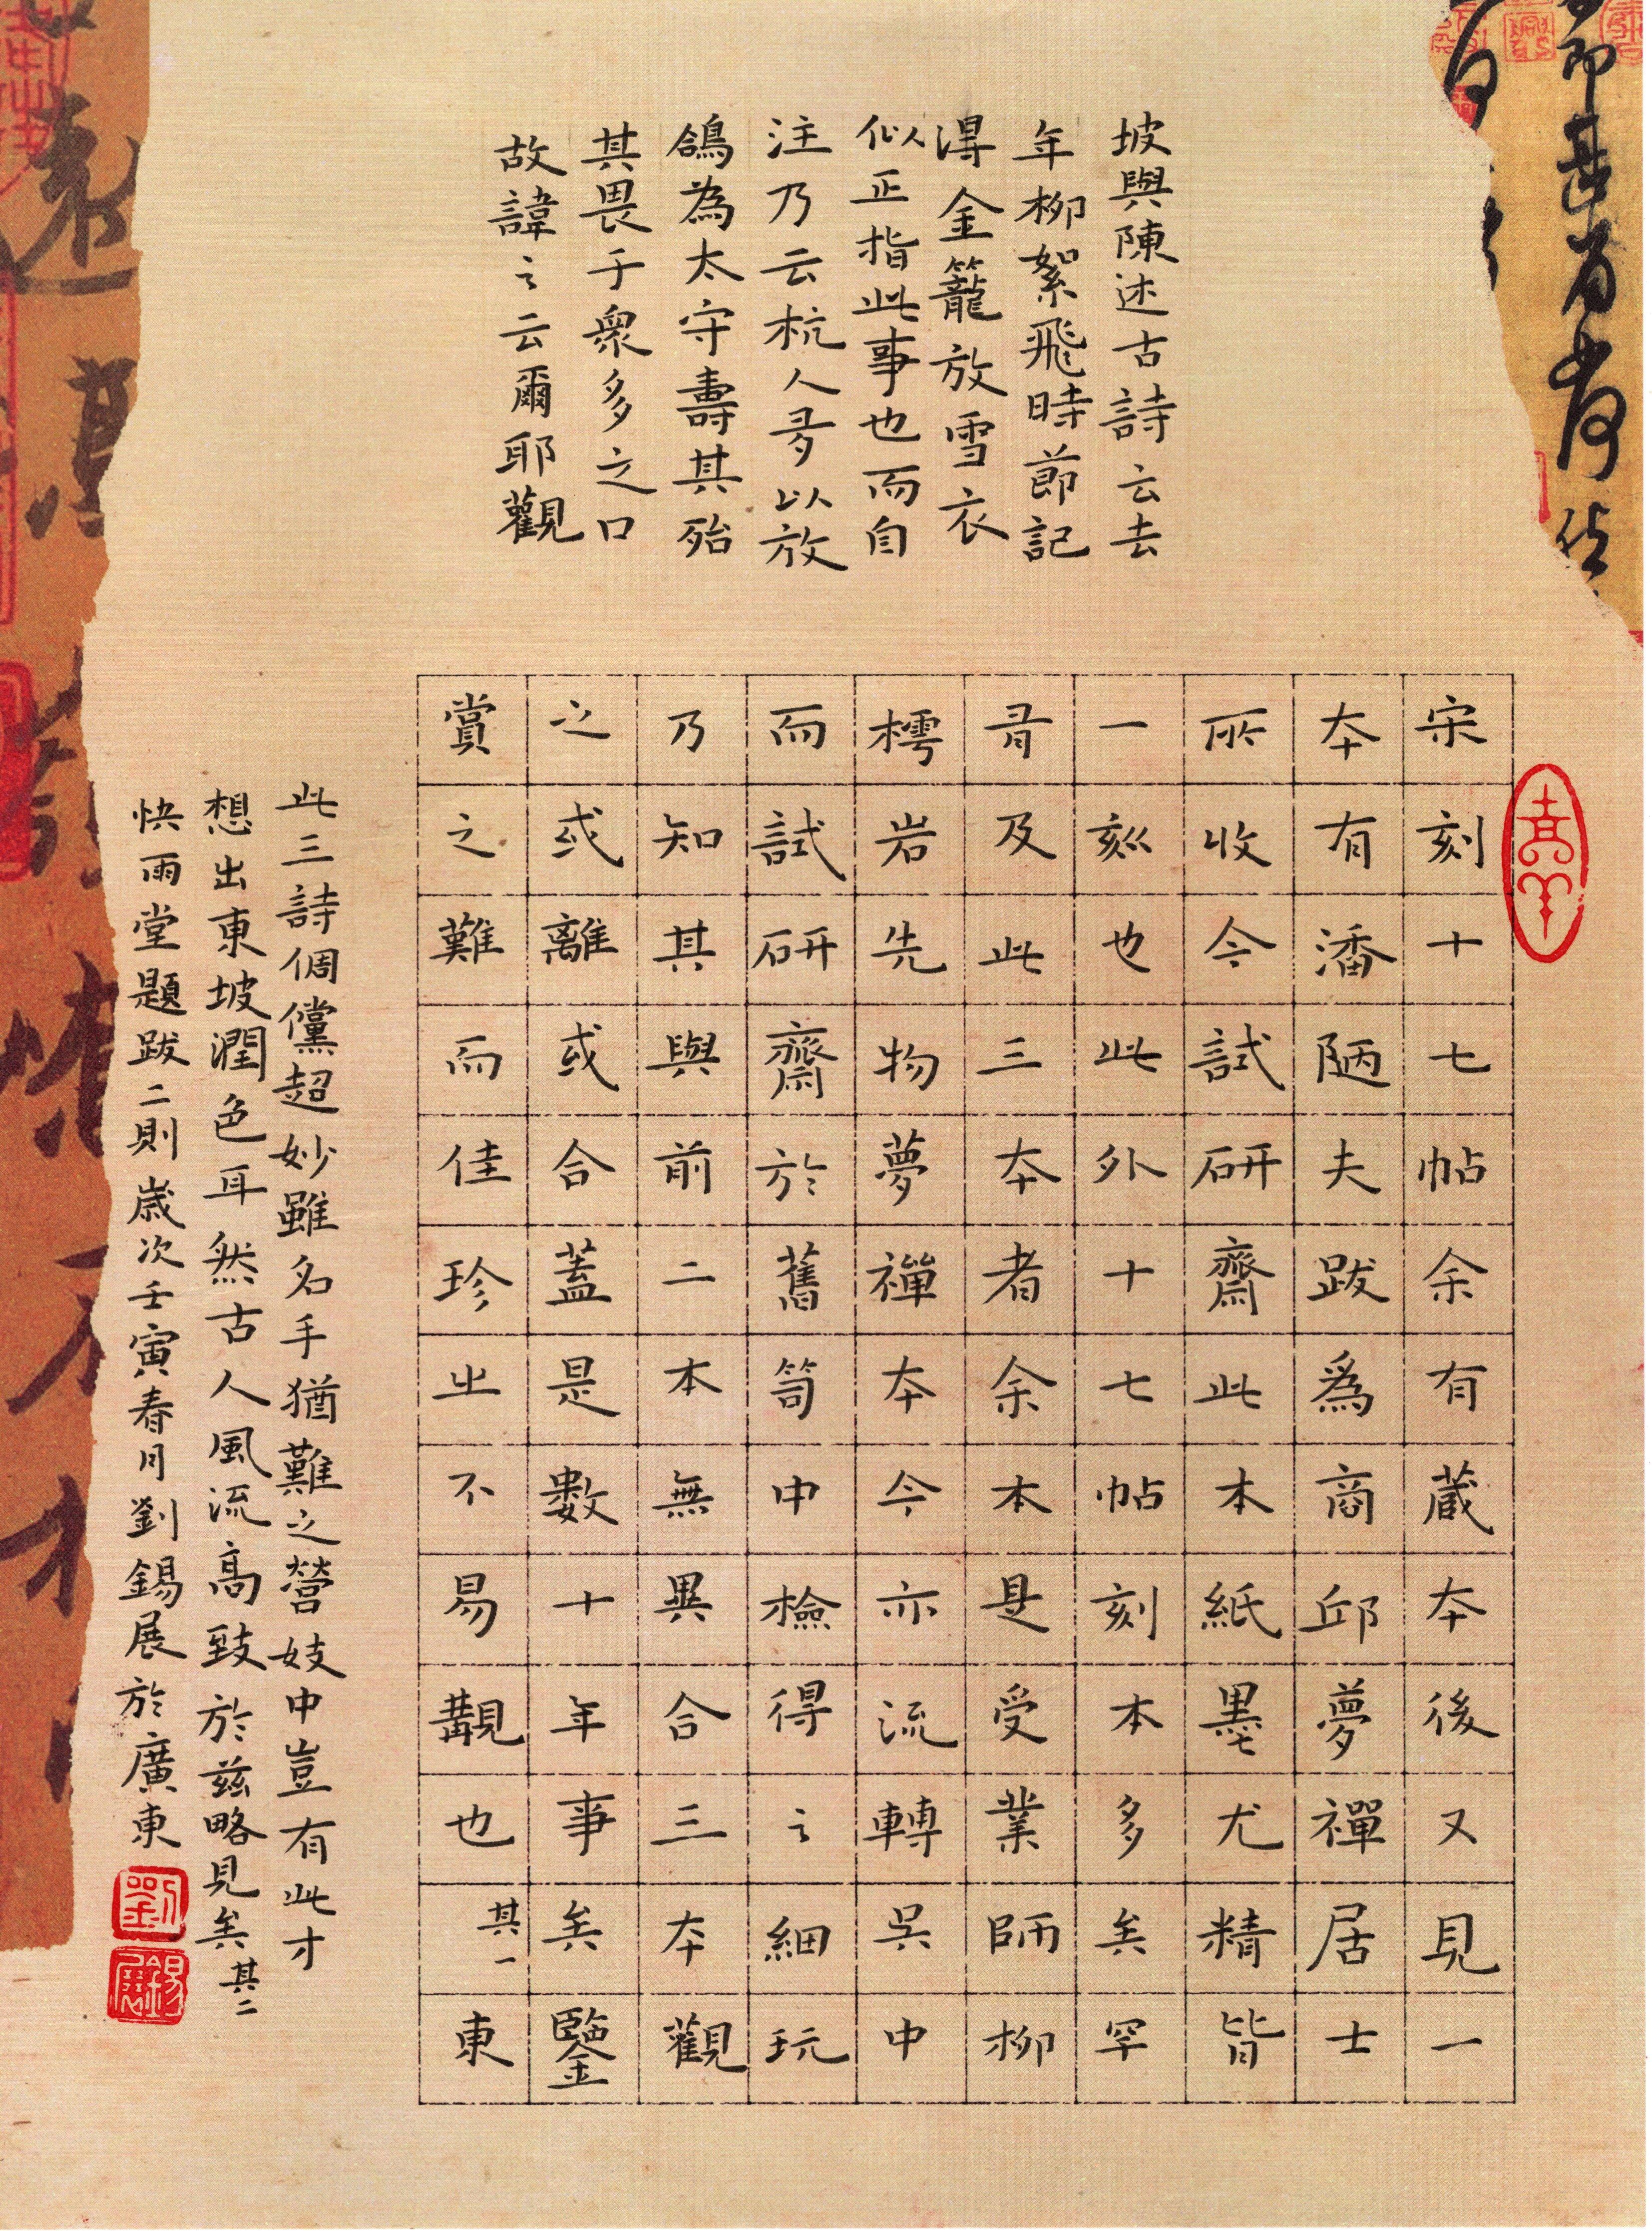 宋刻十七帖余有蔵本後又見一
本有潘陋夫跋爲商邱夢禪居士
所收今試研齋此本紙墨尤精皆
一刻也此外十七帖刻本多矣罕
有及此三本者余本是受業師柳
樗岩先物夢禪本今亦流轉吳中
而試研齋於舊笥中檢得之細玩
乃知其與前二本無異合三本觀
之或離或合蓋是數十年事矣鑒
賞之難而佳珍㞢不易覯也其一東
坡與陳述古詩云去
年柳絮飛時節記
得金籠放雪衣
似正指此事也而自
注乃云杭人多以放
鴿為太守壽其殆
其畏于衆多之口
故諱之云爾耶觀
此三詩倜儻超妙雖名手猶難之營妓中豈有此才
想出東坡潤色耳然古人風流高致於茲略見矣其二
快雨堂題跋二則歲次壬寅春月劉錫展於廣東
劉
錫展